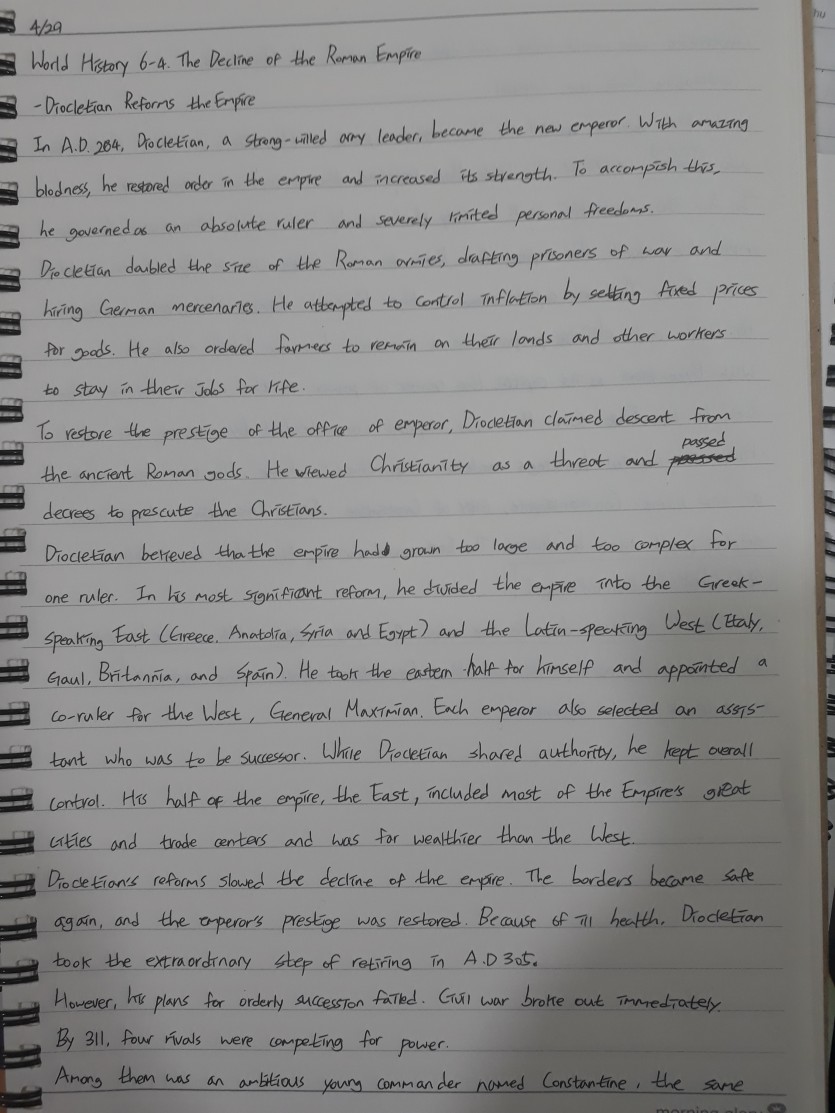 4/29
World History 6-4. The Decline of the Roman Empire
- Diocletian Reforms the Empire
In A.D. 284, Diocletian, a strong-willed army leader, became the new emperor. With amazing
blodness, he restored order in the empire and increased its strength. To accompish this,
he governed as an absolute ruler and severely limited personal freedoms.
Diocletian doubled the size of the Roman armies, drafting prisoners of war and
hiring German mercenaries. He attempted to control inflation by setting fixed prices
for goods. He also ordered farmers to remain on their lands and other workers
to stay in their jobs for life.
To restore the prestige of the office of emperor, Diocletian claimed descent from
the ancient Roman gods. He viewed Christianity as a threat and passed
decrees to prescute the Christians.
Diocletian believed that the empire had grown too large and too complex for
one ruler. In his most significant reform, he divided the empire into the Greek-
speaking East (Greece, Anatolia, Syria and Egypt) and the Latin-speaking West (Italy,
Gaul, Britannia, and Spain). He took the eastern half for himself and appointed a
co-ruler for the West, General Maximian. Each emperor also selected an assis-
tant who was to be successor. While Diocletian shared authority, he kept overall
control. His half of the empire, the East, included most of the Empire's great
cities and trade centers and was far wealthier than the West.
Diocletian's reforms slowed the decline of the empire. The borders became safe
again, and the emperor's prestige was restored. Because of ill health, Diocletian
took the extraordinary step of retiring in A.D 305.
However, his plans for orderly succession failed. Civil war broke out immediately.
By 311, four rivals were competing for power.
Among them was an ambitious young commander named Constantine, the same